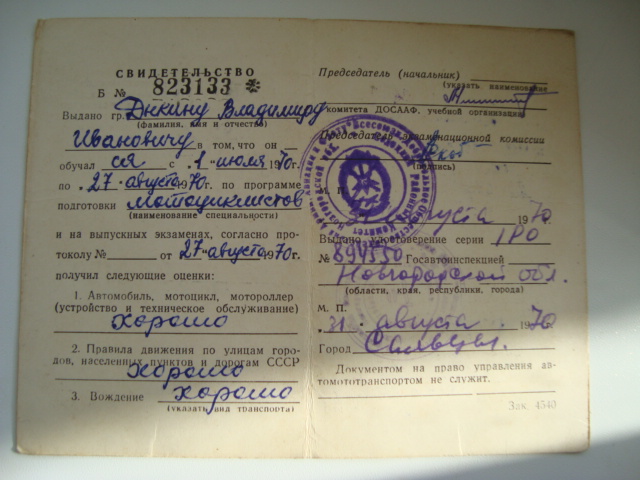 СВИДЕТЕЛЬСТВО
Б № 823133 *
Выдано гр. Дюкину Владимиру
(фамилия, имя и отчество)
Ивановичу в том, что он
обучался с 1 июля 1970г.
по 27 августа 1970 г. по программе
подготовки мотоциклистов
(наименование специальности)
и на выпускных экзаменах, согласно про-
токолу № от 27 августа 70 г.
получил следующие оценки:
1. Автомобиль, мотоцикл, мотороллер
(устройство и техническое обслуживание)
хорошо
2. Правила движения по улицам горо-
дов, населенных пунктов и дорогам СССР
хорошо
3. Вождение хорошо
(указать вид транспорта)
Председатель (начальник)
(указать наименование
комитета ДОСААФ, учебной организации)
Председатель экзаменационной комиссии
(подпись)
М. П.
31 августа 1970
Выдано удостоверение серии IРО
№ 694550 Госавтоинспекцией
Новгородской обл.
(области, края, республики, города)
М. П.
31 августа 1970
Город Сольцы.
Документом на право управления ав-
томототранспортом не служит.
Зак. 4540